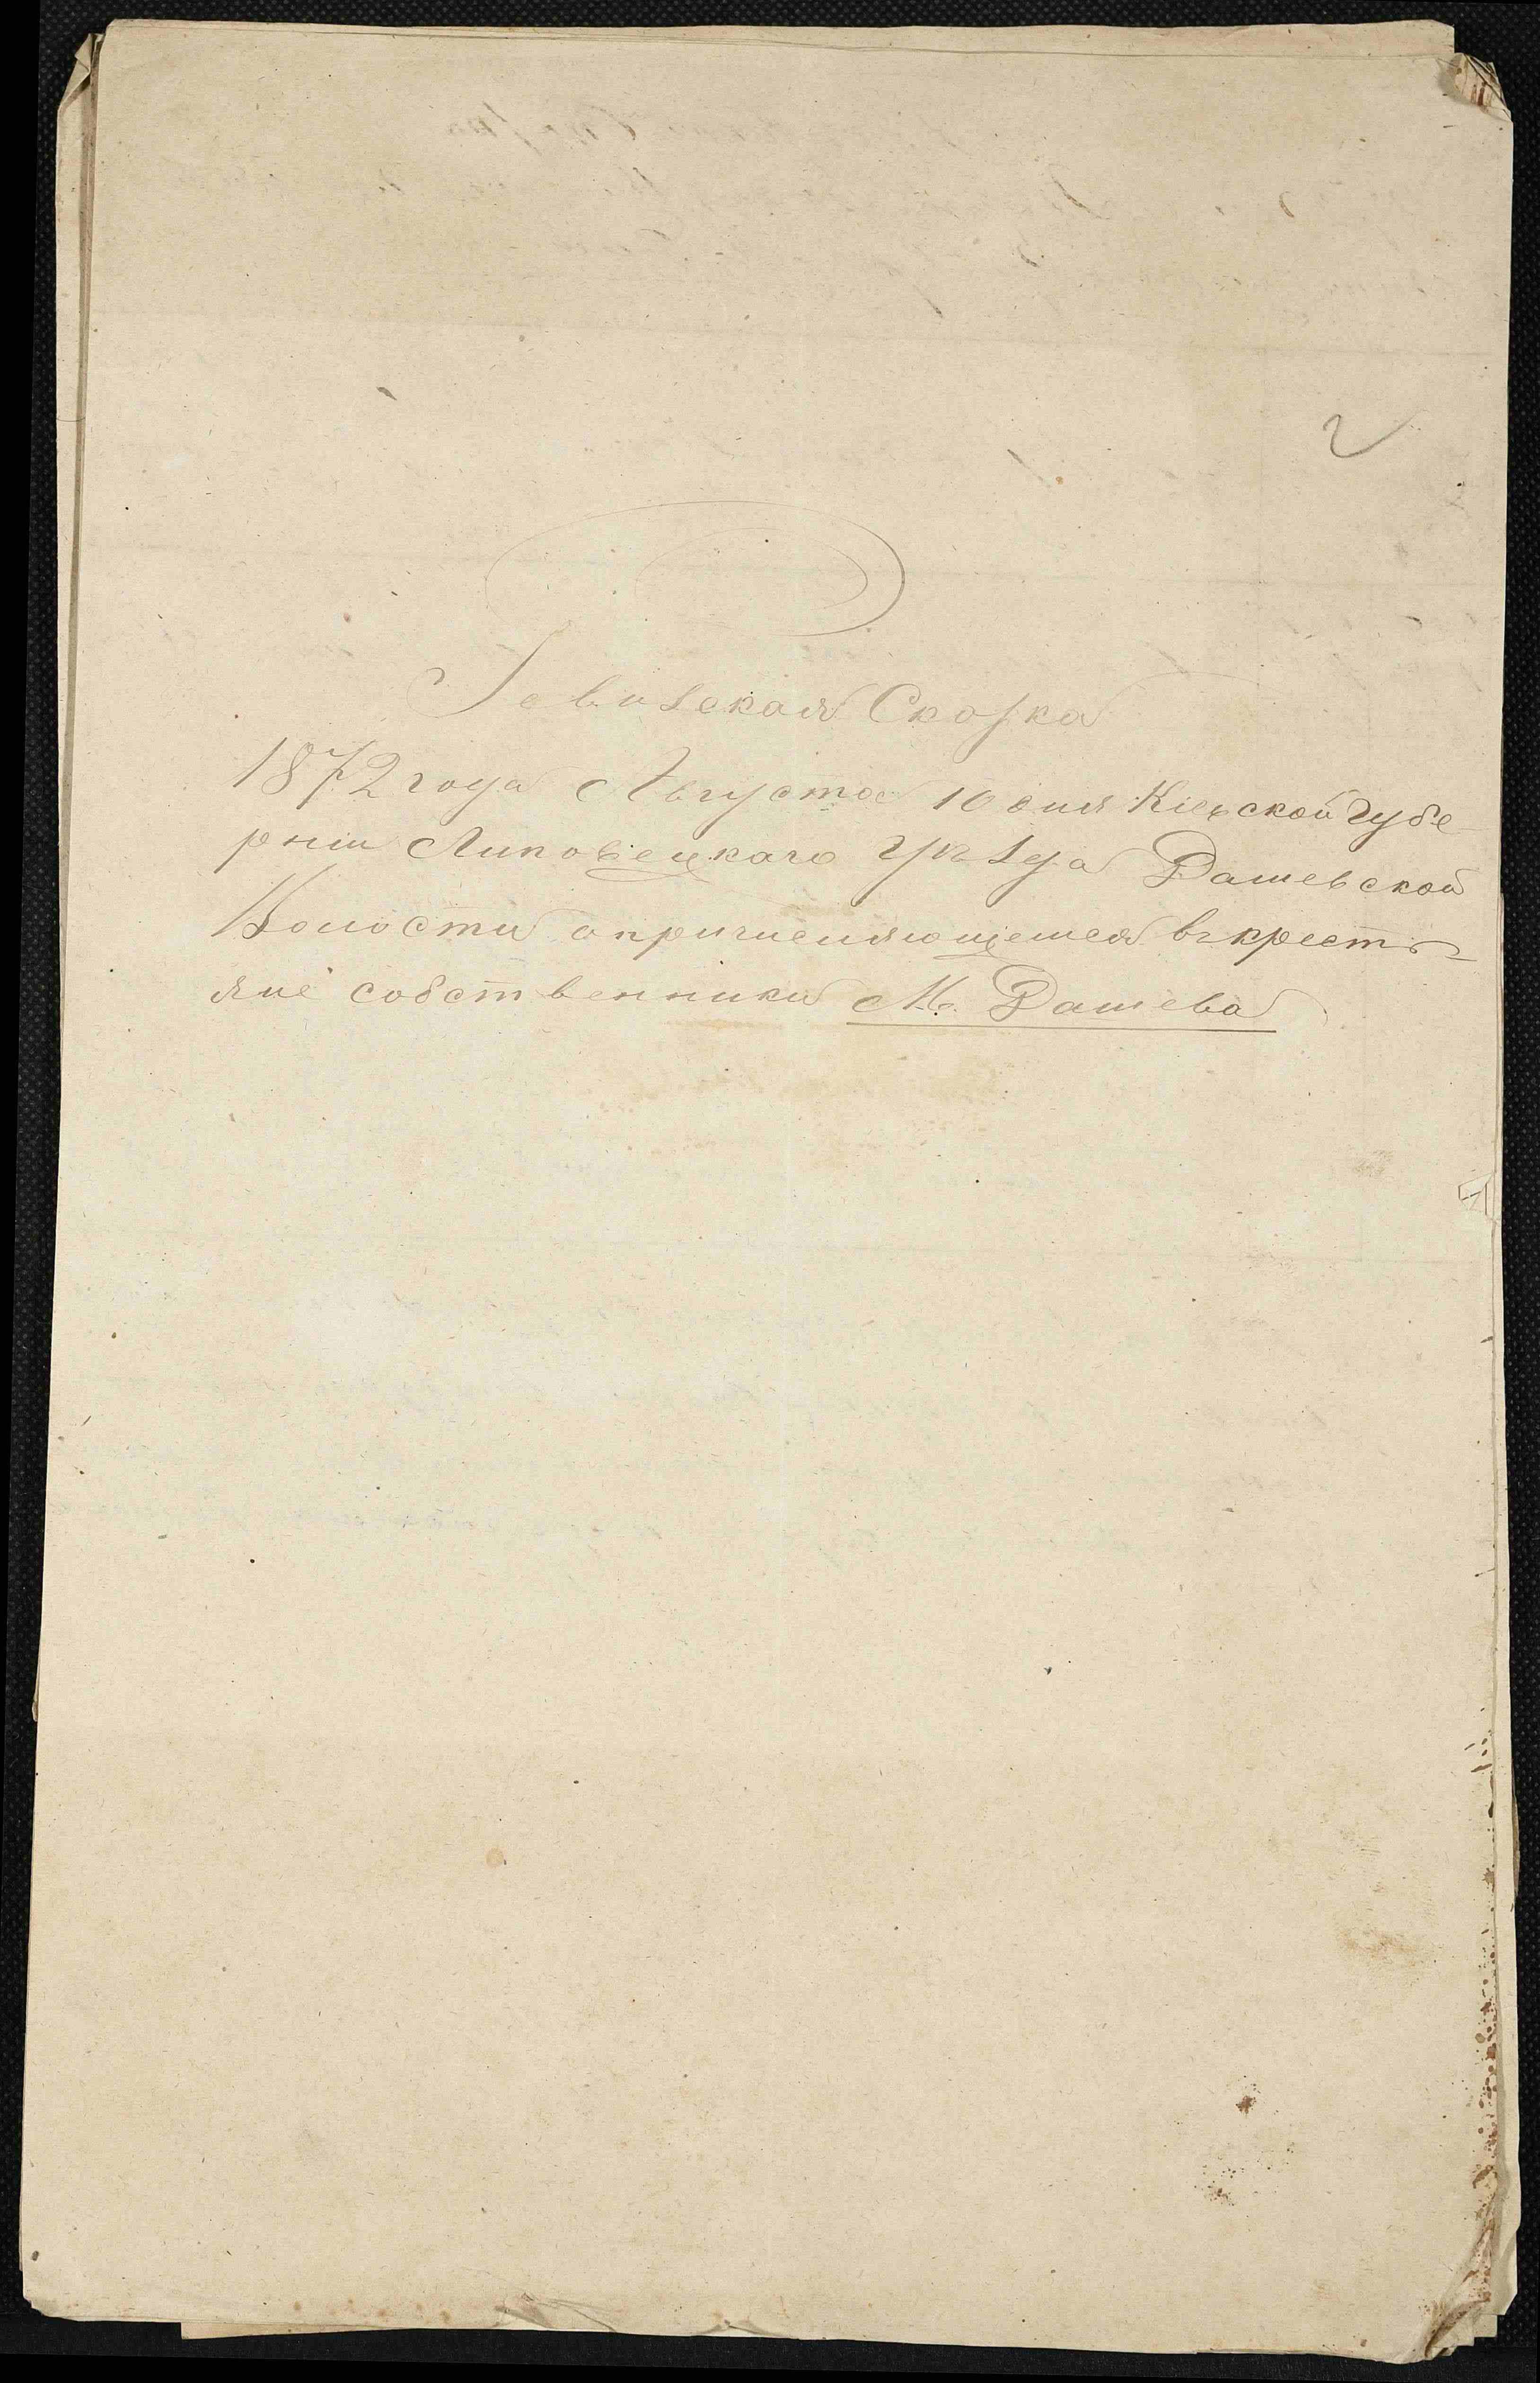 2
Ревизская Сказка
1872 года Августа 10 дня Кіевской Губе-
рніи Липовецкаго Уѣзда Дашевской
Волости о причисляющемся въ кресть-
яне собственники М. Дашева